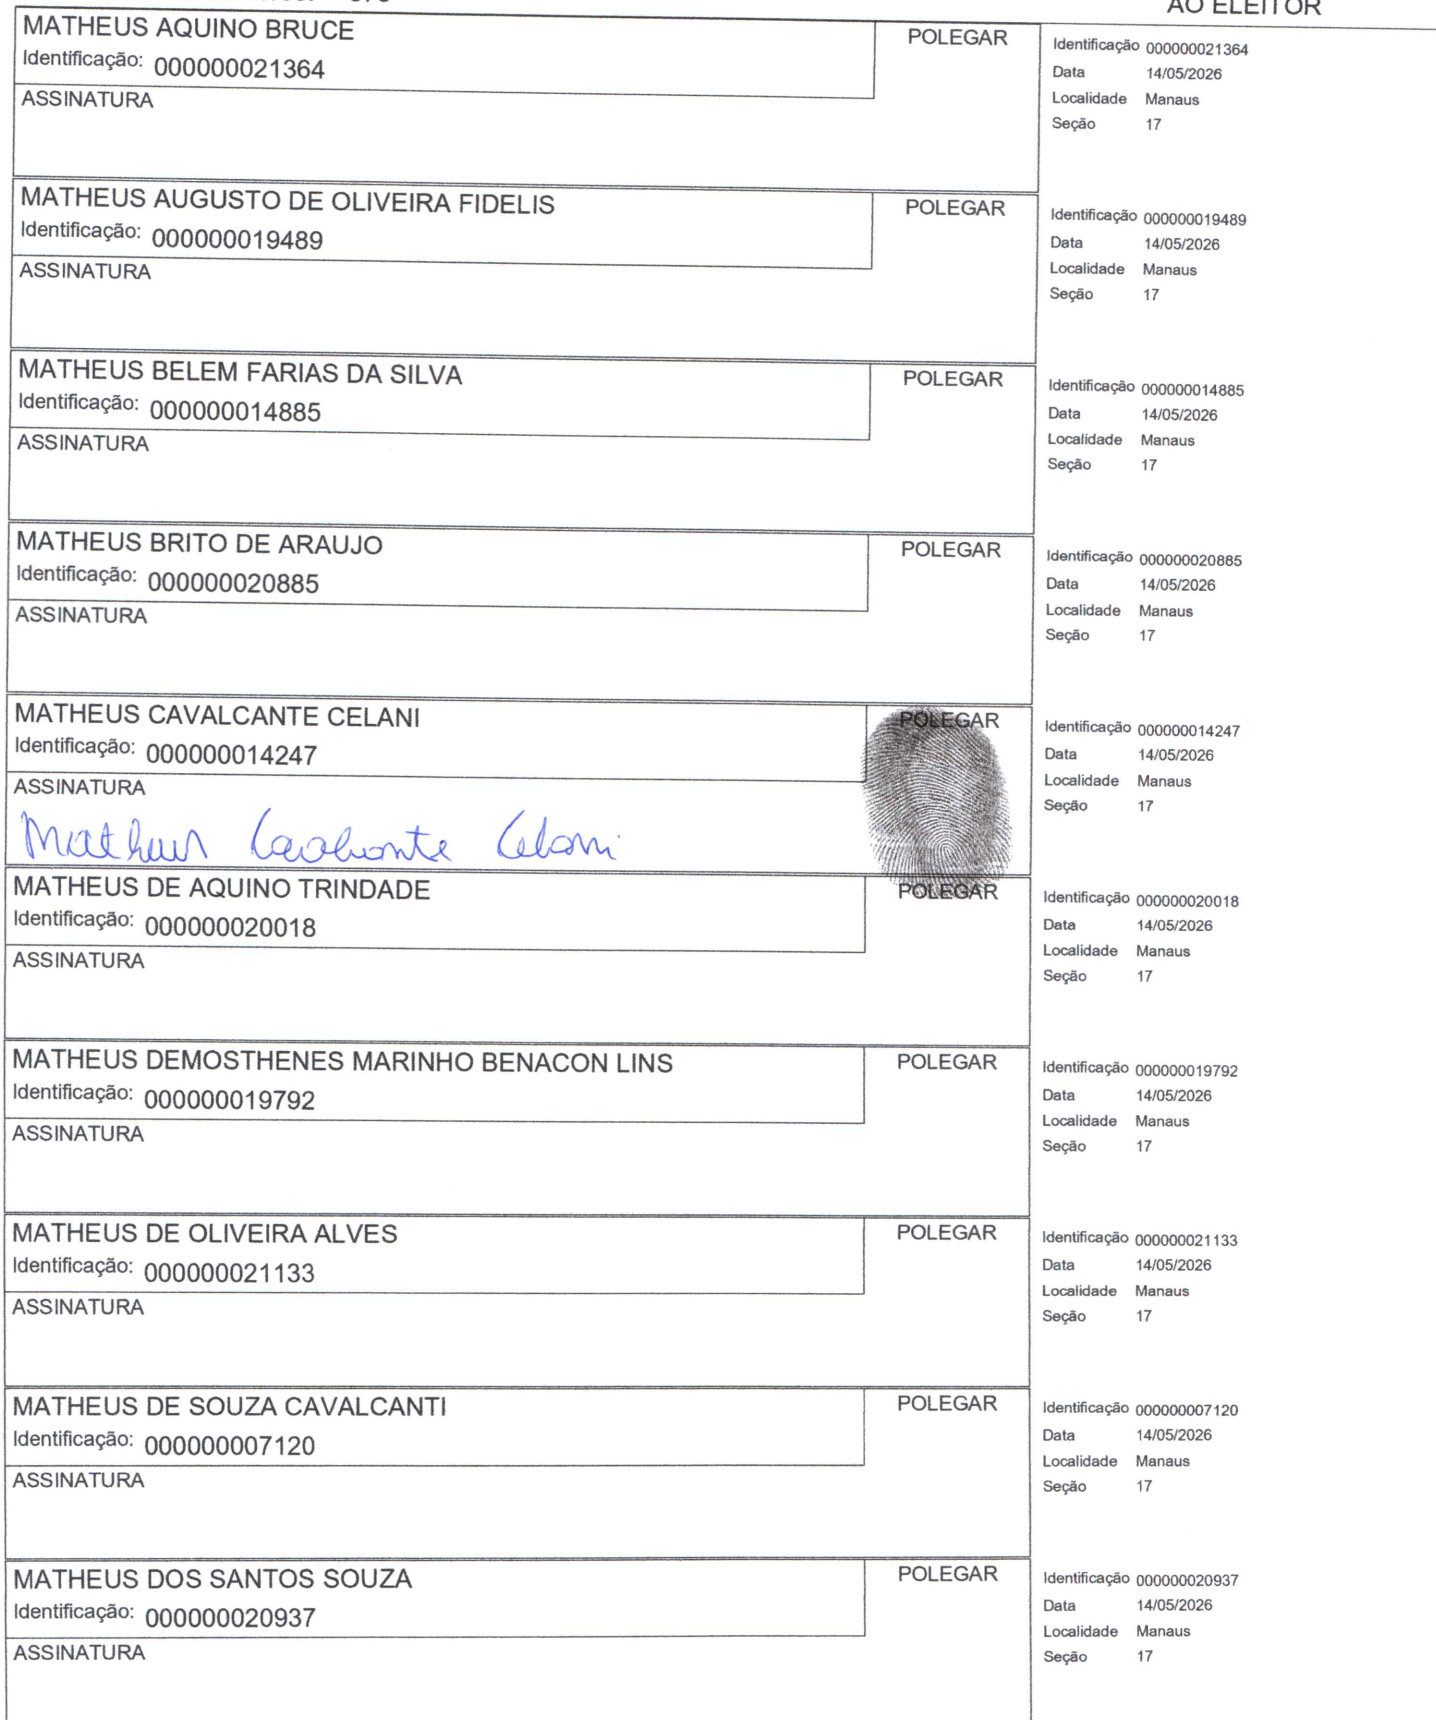 AO ELEITOR
MATHEUS AQUINO BRUCE
POLEGAR
Identificação: 000000021364
ASSINATURA
Identificação 000000021364
Data 14/05/2026
Localidade Manaus
Seção 17
MATHEUS AUGUSTO DE OLIVEIRA FIDELIS
POLEGAR
Identificação: 000000019489
ASSINATURA
Identificação 000000019489
Data 14/05/2026
Localidade Manaus
Seção 17
MATHEUS BELEM FARIAS DA SILVA
POLEGAR
Identificação: 000000014885
ASSINATURA
Identificação 000000014885
Data 14/05/2026
Localidade Manaus
Seção 17
MATHEUS BRITO DE ARAUJO
POLEGAR
Identificação: 000000020885
ASSINATURA
Identificação 000000020885
Data 14/05/2026
Localidade Manaus
Seção 17
MATHEUS CAVALCANTE CELANI
POLEGAR
Identificação: 000000014247
ASSINATURA
Matheus Cavalcante Celani
Identificação 000000014247
Data 14/05/2026
Localidade Manaus
Seção 17
MATHEUS DE AQUINO TRINDADE
POLEGAR
Identificação: 000000020018
ASSINATURA
Identificação 000000020018
Data 14/05/2026
Localidade Manaus
Seção 17
MATHEUS DEMOSTHENES MARINHO BENACON LINS
POLEGAR
Identificação: 000000019792
ASSINATURA
Identificação 000000019792
Data 14/05/2026
Localidade Manaus
Seção 17
MATHEUS DE OLIVEIRA ALVES
POLEGAR
Identificação: 000000021133
ASSINATURA
Identificação 000000021133
Data 14/05/2026
Localidade Manaus
Seção 17
MATHEUS DE SOUZA CAVALCANTI
POLEGAR
Identificação: 000000007120
ASSINATURA
Identificação 000000007120
Data 14/05/2026
Localidade Manaus
Seção 17
MATHEUS DOS SANTOS SOUZA
POLEGAR
Identificação: 000000020937
ASSINATURA
Identificação 000000020937
Data 14/05/2026
Localidade Manaus
Seção 17